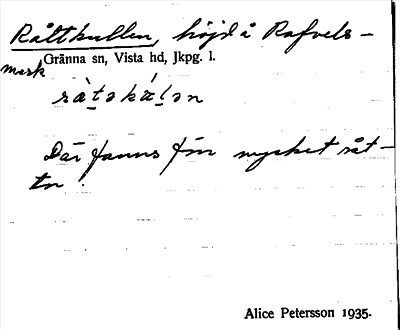 Råttkullen, höjd å Rafvels-
mark
Gränna sn, Vista hd, Jkpg. l.
Där fanns förr mycket råt-
tor.
Alice Petersson 1935.